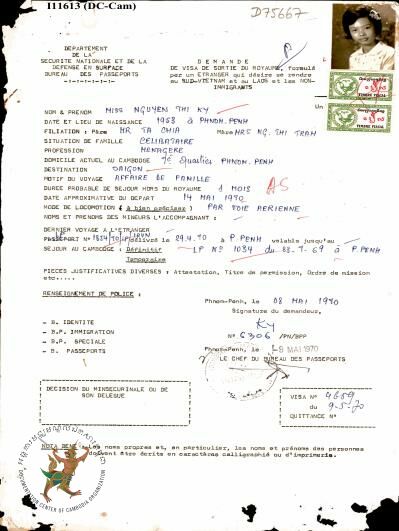 111613 (DC-Cam)
D75667
DEPARTEMENT
DE LA
SECURITE NATIONALE ET DE LA
DEFENSE EN SURFACE
BUREAU DES PASSEPORTS
DEMANDE
DE VISA DE SORTIE DU ROYAUME, formulé
par un ETRANGER qui désire se rendre
au SUD-VIETNAM et au LAOS et les NON-
IMMIGRANTS
NOM & PRENOM MISS NGUYEN THI KY
DATE ET LIEU DE NAISSANCE 1953 à PHNOM.PENH
FILIATION : Père MR TA CHIA Mère MRS NG. THI TRAM
SITUATION DE FAMILLE CELIBATAIRE
PROFESSION MENAGERE
DOMICILE ACTUEL AU CAMBODGE 7è Quartier PHNOM.PENH
DESTINATION SAIGON
MOTIF DU VOYAGE AFFAIRE DE FAMILLE
DUREE PROBABLE DE SEJOUR HORS DU ROYAUME 1 MOIS
DATE APPROXIMATIVE DU DEPART 14 MAI 1970
MODE DE LOCOMOTION (à bien préciser) PAR VOIE AERIENNE
NOMS ET PRENOMS DES MINEURS L'ACCOMPAGNANT :
DERNIER VOYAGE A L'ETRANGER
PASSEPORT N° délivré le 29.4.70 à P.PENH valable jusqu'au
SEJOUR AU CAMBODGE : Définitif LP N° 1034 du à P.PENH
Temporaire
PIECES JUSTIFICATIVES DIVERSES : Attestation, Titre de permission, Ordre de mission
etc....
RENSEIGNEMENT DE POLICE :
Phnom-Penh, le 08 MAI 1970
Signature du demandeur,
KY
N° 6306 /PN/BPP
- B. IDENTITE
- B.P. IMMIGRATION
- B.P. SPECIALE
- B. PASSEPORTS
Phnom-Penh, le 8 MAI 1970
LE CHEF DU BUREAU DES PASSEPORTS
DECISION DU MINSECURINALE OU DE
SON DELEGUE
VISA N° 4659
du 9-5-70
QUITTANCE N°
NOTA BENE : Les noms propres et, en particulier, les noms et prénoms des personnes
doivent être écrits en caractères calligraphié ou d'imprimerie.
DOCUMENTATION CENTER OF CAMBODIA ORGANIZATION